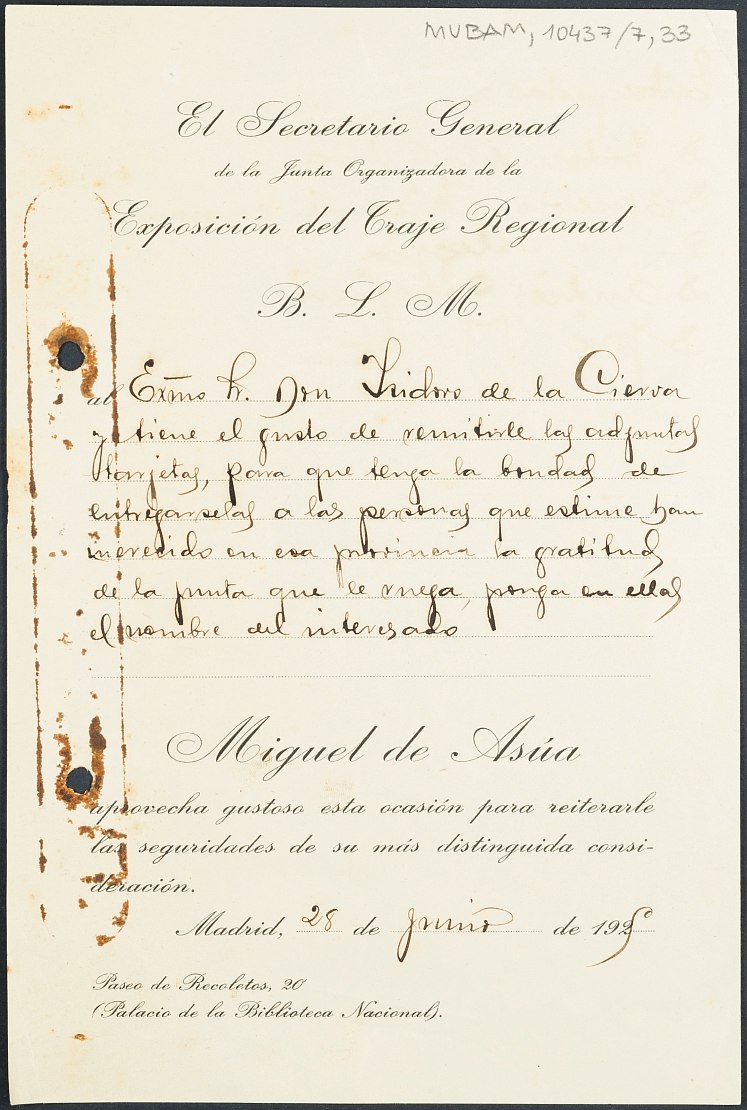 MUBAM, 10437/7, 33
El Secretario General
de la Junta Organizadora de la
Exposición del Traje Regional
B. L. M.
al Exmo Sr. Don Isidoro de la Cierva
y tiene el gusto de remitirle las adjuntas
tarjetas, para que tenga la bondad de
entregarselas a las personas que estime han
merecido en esa provincia la gratitud
de la junta que le ruega, ponga en ellas
el nombre del interesado
Miguel de Asúa
aprovecha gustoso esta ocasión para reiterarle
las seguridades de su más distinguida consi-
deración.
Madrid, 28 de junio de 1925
Paseo de Recoletos, 20
(Palacio de la Biblioteca Nacional).